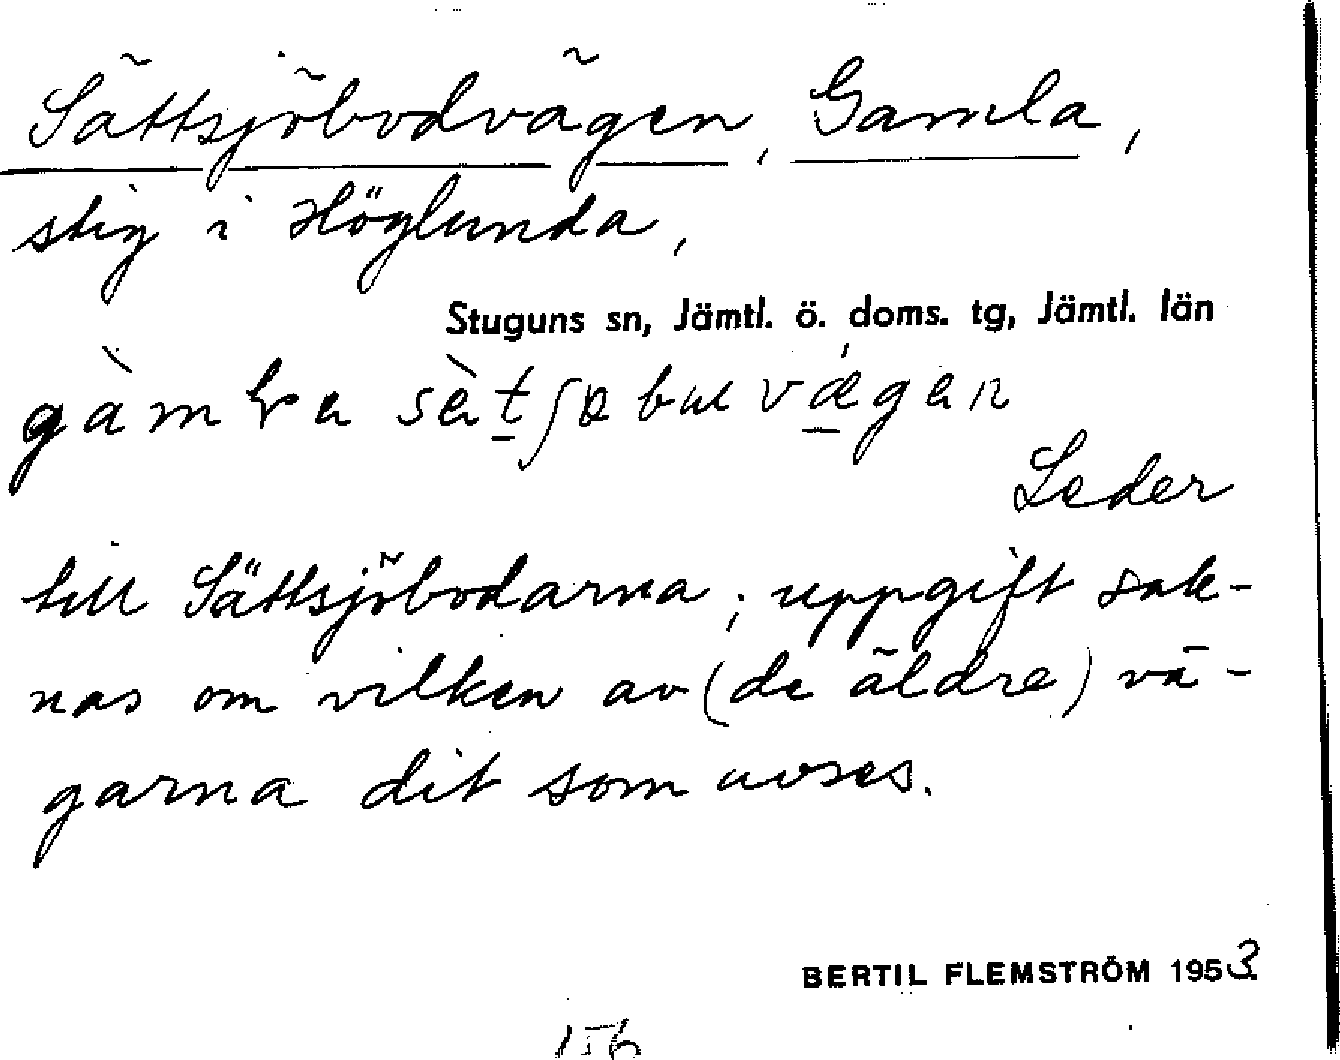 Sättsjöbodvägen, Gamla,
stig i Höglunda,
Stuguns sn, Jämtl. ö. doms. tg, Jämtl. län
Leder
till Sättsjöbodarna; uppgift sak-
nas om vilken av (de äldre) vä-
garna dit som avses.
BERTIL FLEMSTRÖM 1953
156